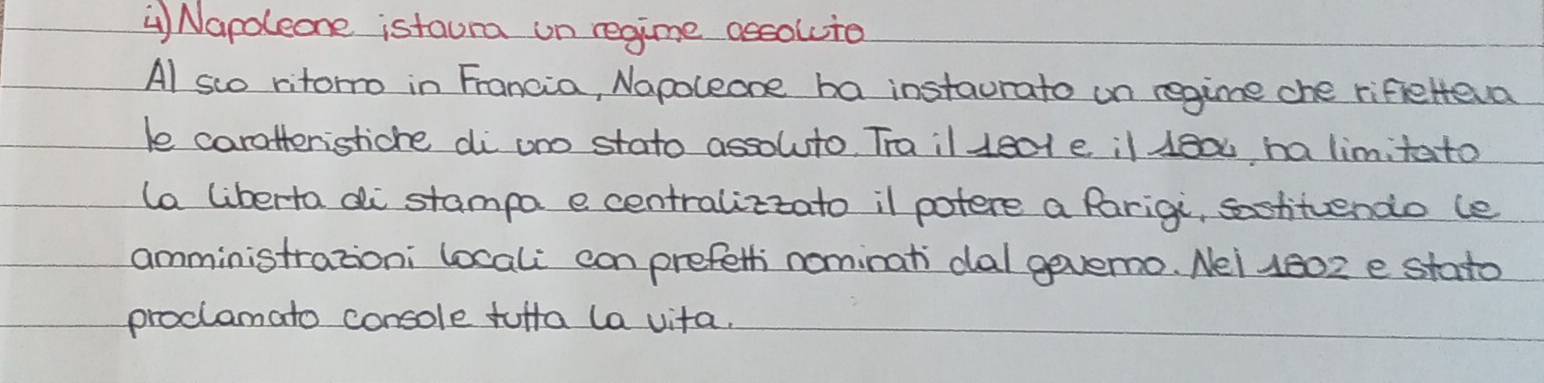 4) Napoleone istaura un regime assoluto
Al suo ritorno in Francia, Napoleone ha instaurato un regime che rifletteva
le caratteristiche di uno stato assoluto. Tra il 1801 e il 1804, ha limitato
la liberta di stampa e centralizzato il potere a Parigi, sostituendo le
amministrazioni locali con prefetti nominati dal governo. Nel 1802 e stato
proclamato console tutta la vita.